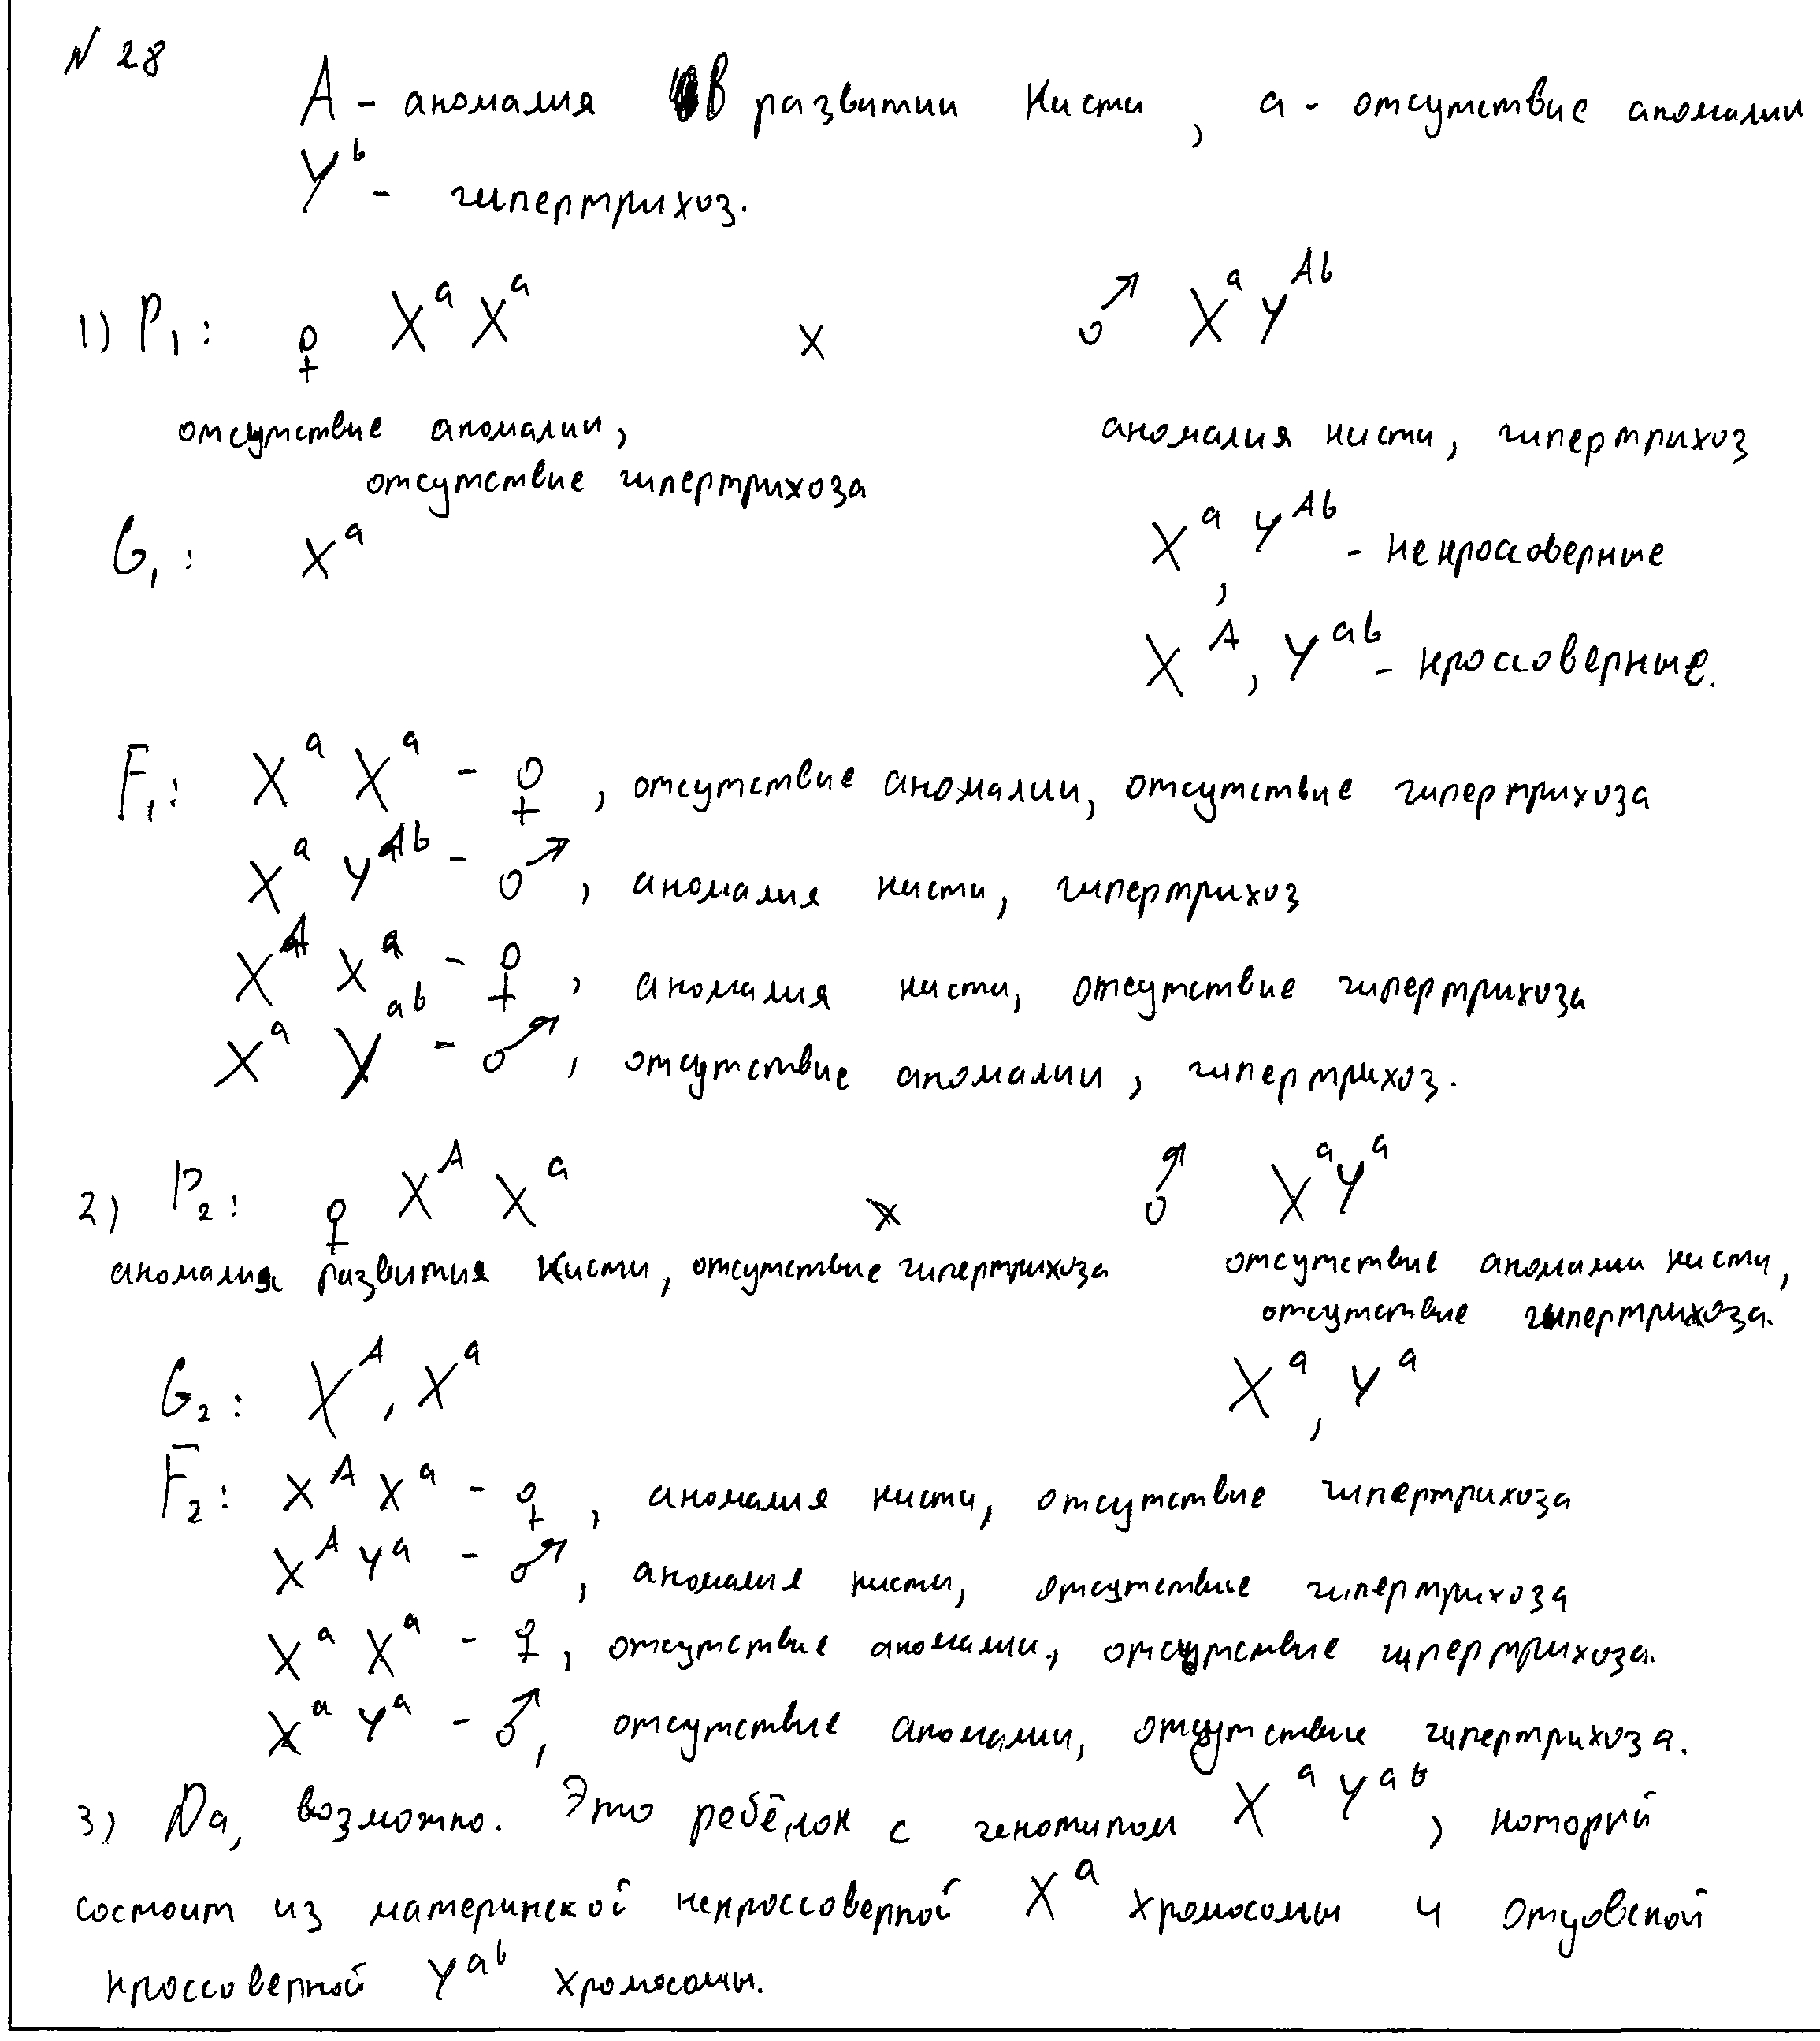 N 28
A - аномалия в развитии кисти, a - отсутствие аномалии
Y^b - гипертрихоз.
1) P₁: ♀ X^a X^a x ♂ X^a Y^Ab
отсутствие аномалии, аномалия кисти, гипертрихоз
отсутствие гипертрихоза
G₁: X^a X^a, Y^Ab - некроссоверные
X^A, Y^ab - кроссоверные.
F₁: X^a X^a - ♀, отсутствие аномалии, отсутствие гипертрихоза
X^a Y^Ab - ♂, аномалия кисти, гипертрихоз
X^A X^a - ♀, аномалия кисти, отсутствие гипертрихоза
X^a Y^ab - ♂, отсутствие аномалии, гипертрихоз.
2) P₂: ♀ X^A X^a x ♂ X^a Y^a
аномалия развития кисти, отсутствие гипертрихоза отсутствие аномалии кисти,
отсутствие гипертрихоза.
G₂: X^A, X^a X^a, Y^a
F₂: X^A X^a - ♀, аномалия кисти, отсутствие гипертрихоза
X^A Y^a - ♂, аномалия кисти, отсутствие гипертрихоза
X^a X^a - ♀, отсутствие аномалии, отсутствие гипертрихоза.
X^a Y^a - ♂, отсутствие аномалии, отсутствие гипертрихоза.
3) Да, возможно. Это ребёнок с генотипом X^a Y^ab, который
состоит из материнской некроссоверной X^a хромосомы и отцовской
кроссоверной Y^ab хромосомы.